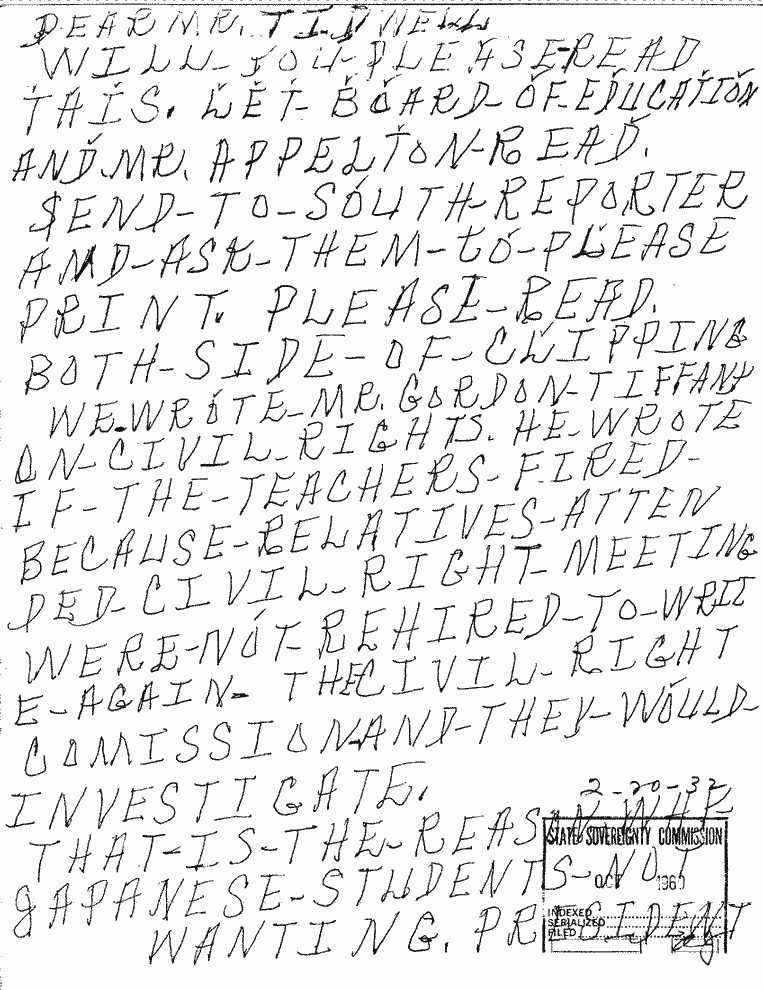 DEAR MR. TIDWELL
WILL-YOU-PLEASE-READ
THIS. LET-BOARD-OF-EDUCATION
AND.MR. APPELTON-READ.
SEND-TO-SOUTH-REPORTER
AND-ASK-THEM-to-PLEASE
PRINT. PLEASE-READ.
BOTH-SIDE-OF-CLIPPING
WE-WROTE-MR. GORDON-TIFFANY
ON-CIVIL-RIGHTS. HE-WROTE
IF-THE-TEACHERS-FIRED-
BECAUSE-RELATIVES-ATTEN
DED-CIVIL-RIGHT-MEETING
WERE-NOT-REHIRED-TO-WRIT
E-AGAIN- THECIVIL-RIGHT
COMISSION-AND-THEY-WOULD-
INVESTIGATE.
2-20-32
THAT-IS-THE-REASON-WHY
STATE SOVEREIGNTY COMMISSION
JAPANESE-STUDENTS-NOT
OCT 1960
INDEXED
SERIALIZED
FILED
WANTING. PRESIDENT